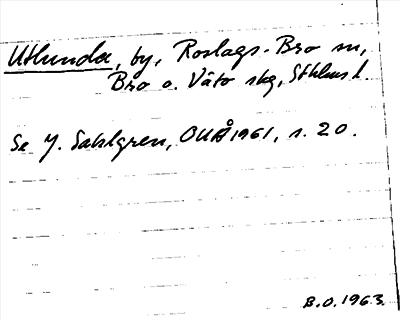 Utlunda, by, Roslags-Bro sn,
Bro o. Vätö skg, Sthlms l.
Se J. Sahlgren, OUÅ 1961, s. 20.
B.O. 1963.